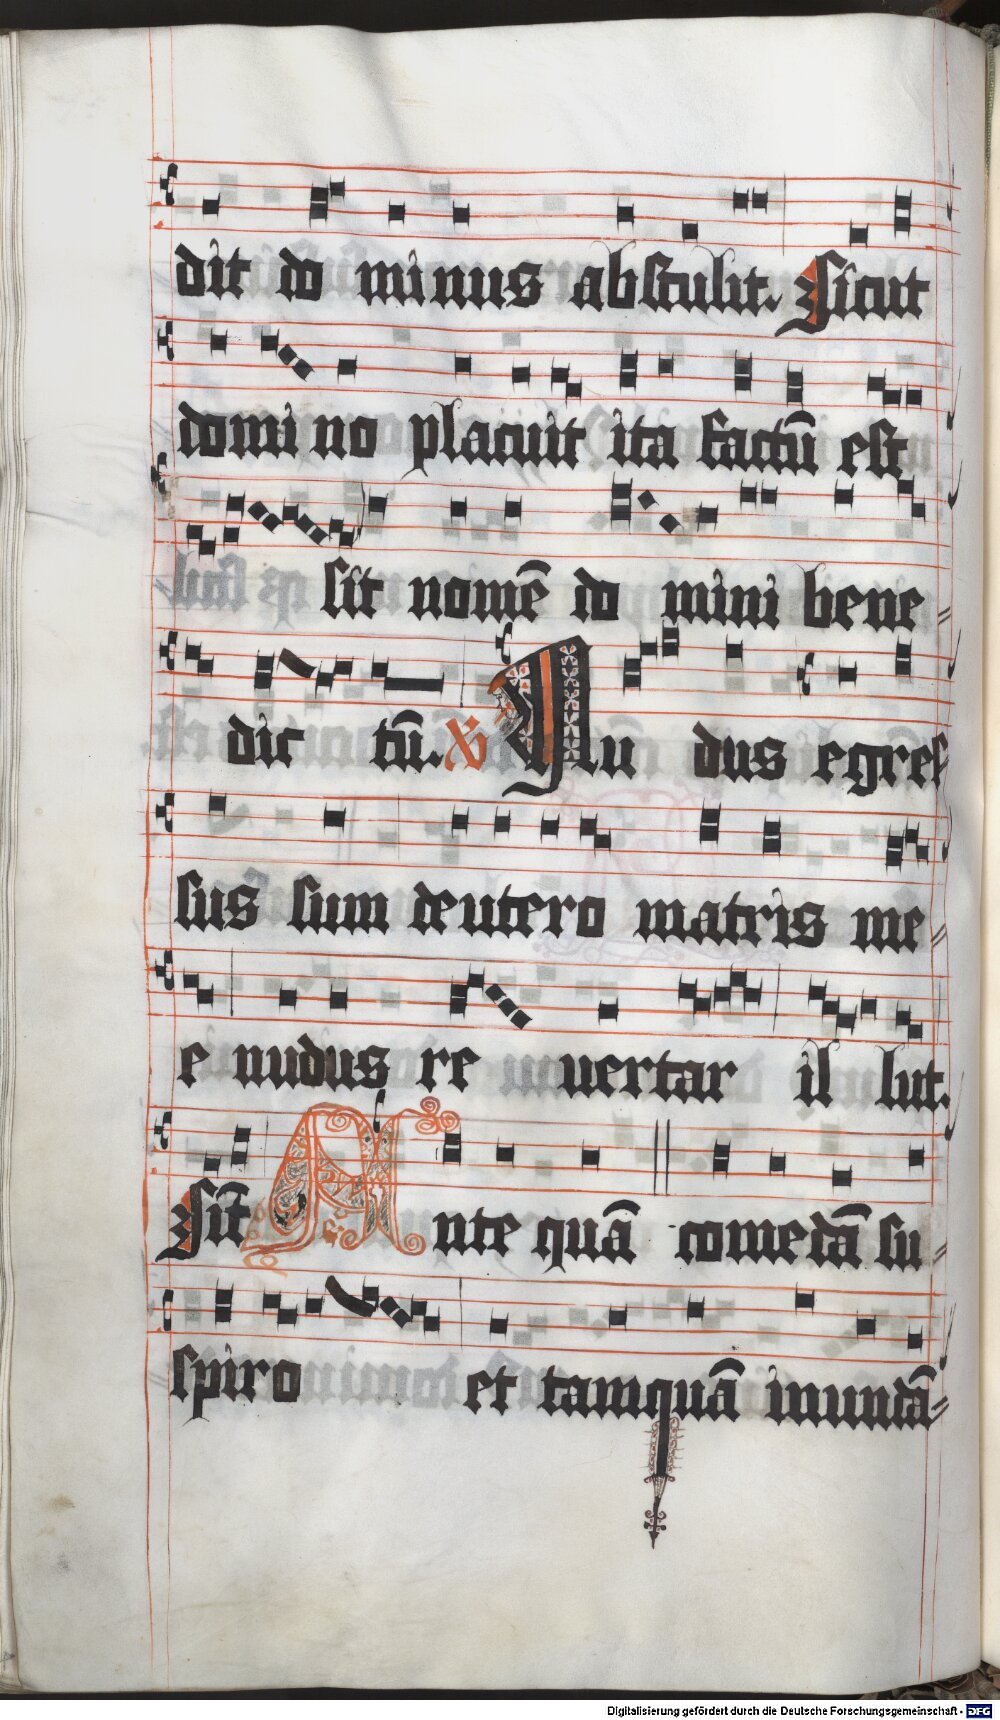 dit do minus abstulit. Sicut
domi no placuit ita factū est
sit nomē do mini bene
dic tū. ℣ Nu dus egres
sus sum de utero matris me
e nudus re uertar il luc.
Sic̄ Ante quā comedā su
spiro et tamquā inundā
Digitalisierung gefördert durch die Deutsche Forschungsgemeinschaft - DFG